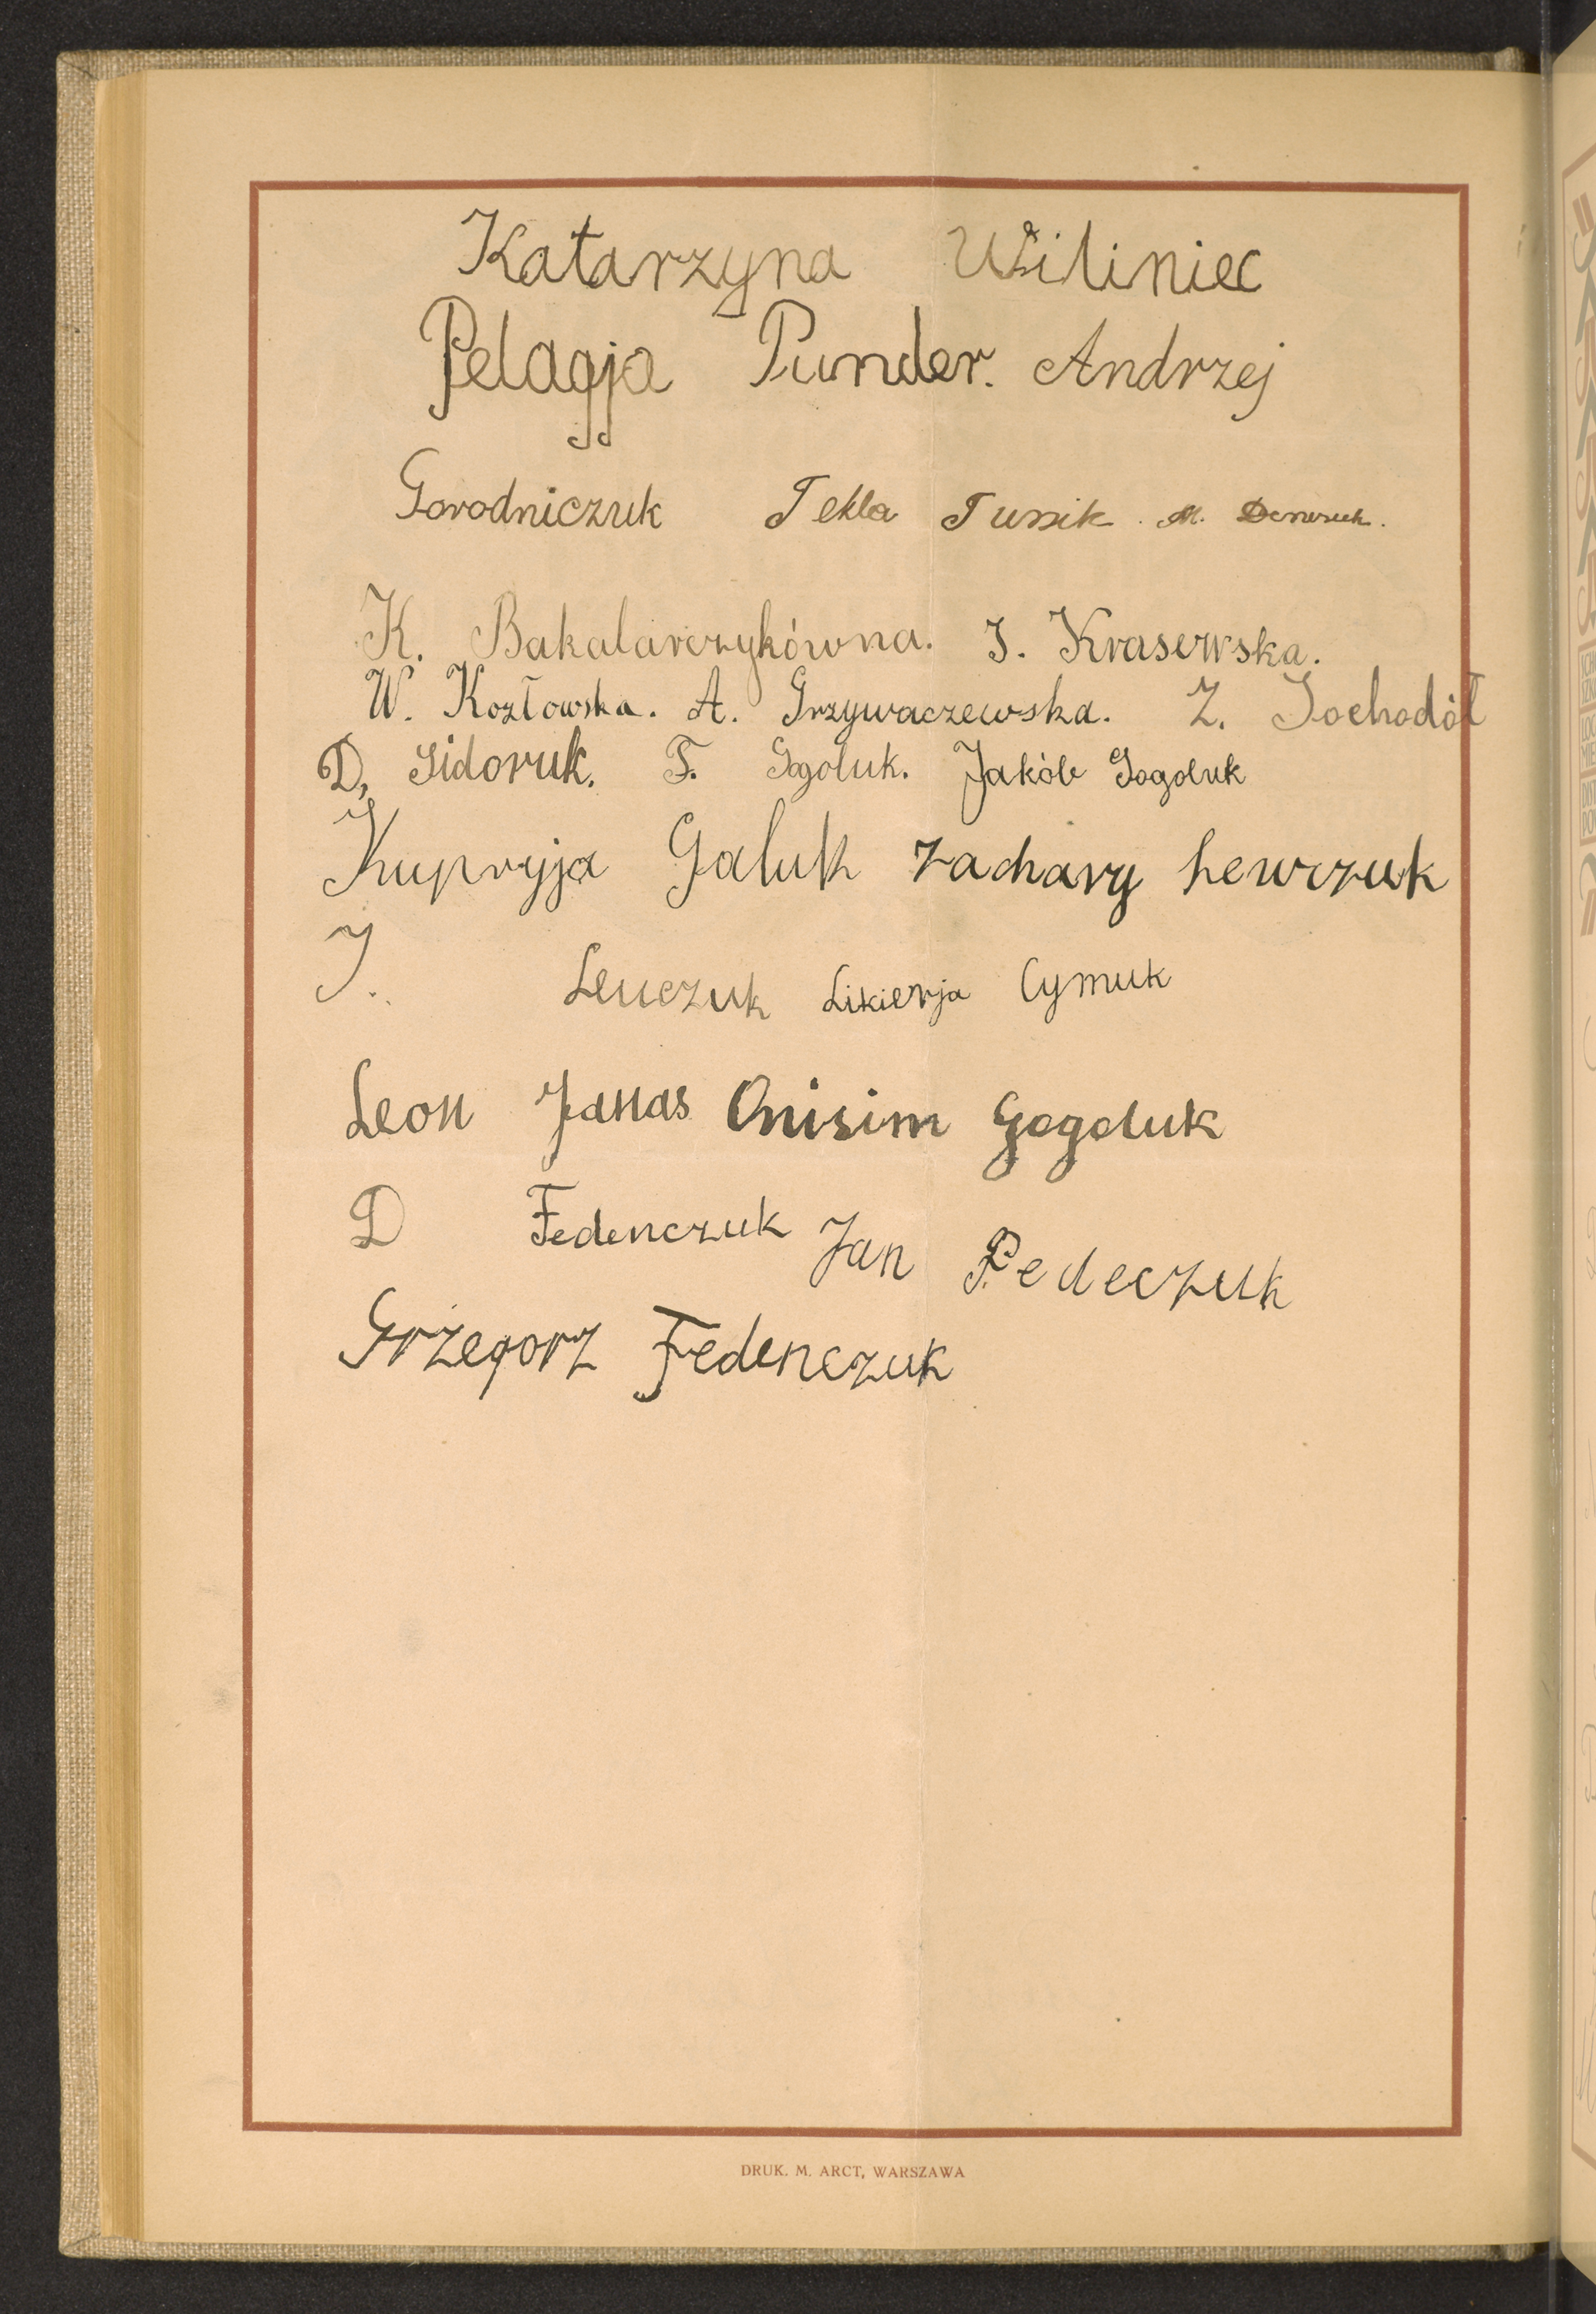 Katarzyna Wiliniec
Pelagja Punder. Andrzej
Gorodniczuk Tekla Tusik. M.
K. Bakalarczykówna. J. Krasewska.
W. Kozłowska. A. Grzywaczewska. Z. Sochodół
D. Sidoruk. F. Gogoluk. Jakób Gogoluk
Kupryja Galuk Zachary Lewczuk
J. Leuczuk Likierja Cymuk
Leon Janas Onisim Gogoluk
D Fedenczuk Jan Pedeczuk
Grzegorz Fedenczuk
DRUK. M. ARCT, WARSZAWA